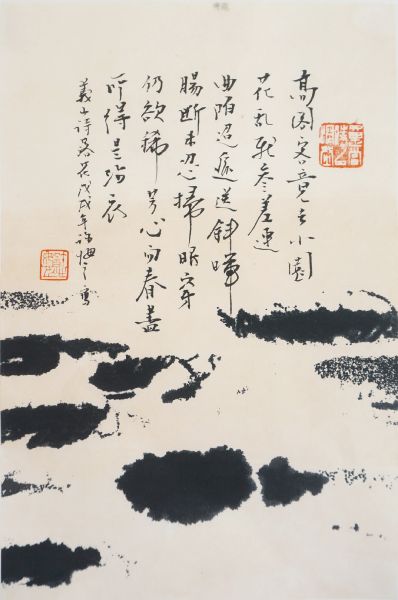 高阁客竟去小園
花乱飛参差連
曲陌迢遞送斜暉
腸断未忍掃眼穿
仍欲稀芳心向春盡
所得是沾衣
義山詩落花戊戌年許悔之